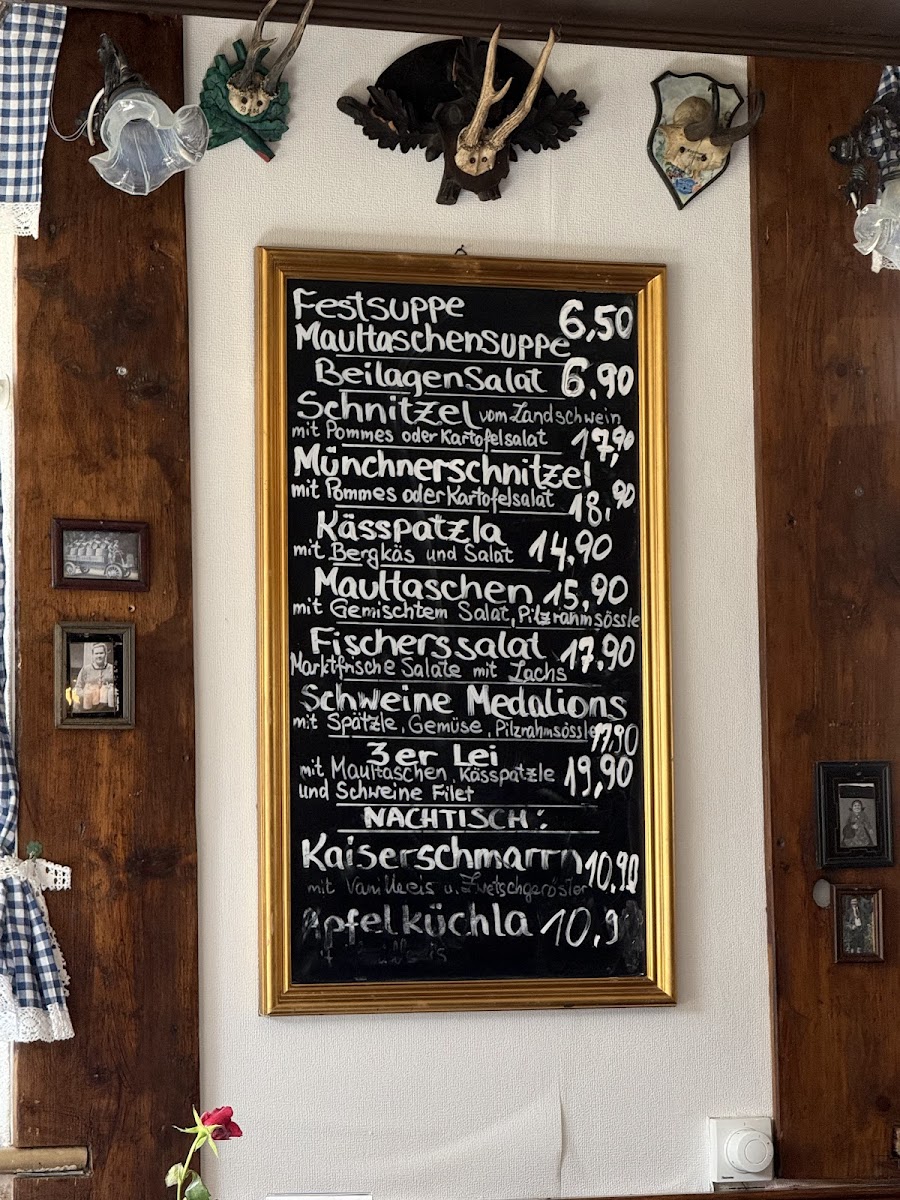 Festsuppe
Maultaschensuppe 6,50
Beilagensalat 6.90
Schnitzel vom Landschwein
mit Pommes oder Kartofelsalat 17,90
Münchnerschnitzel
mit Pommes oder Kartofelsalat 18,90
Kässpatzla
mit Bergkäs und Salat 14,90
Maultaschen 15,90
mit Gemischtem Salat, Pilzrahmsössle
Fischerssalat 17,90
Marktfrische Salate mit Lachs
Schweine Medalions
mit Spätzle, Gemüse, Pilzrahmsössle 17,90
3er Lei
mit Maultaschen, Kässpatzle 19,90
und Schweine Filet
NACHTISCH:
Kaiserschmarrn 10,90
mit Vanilleeis u. Zwetschgeröster
Apfelküchla 10,9